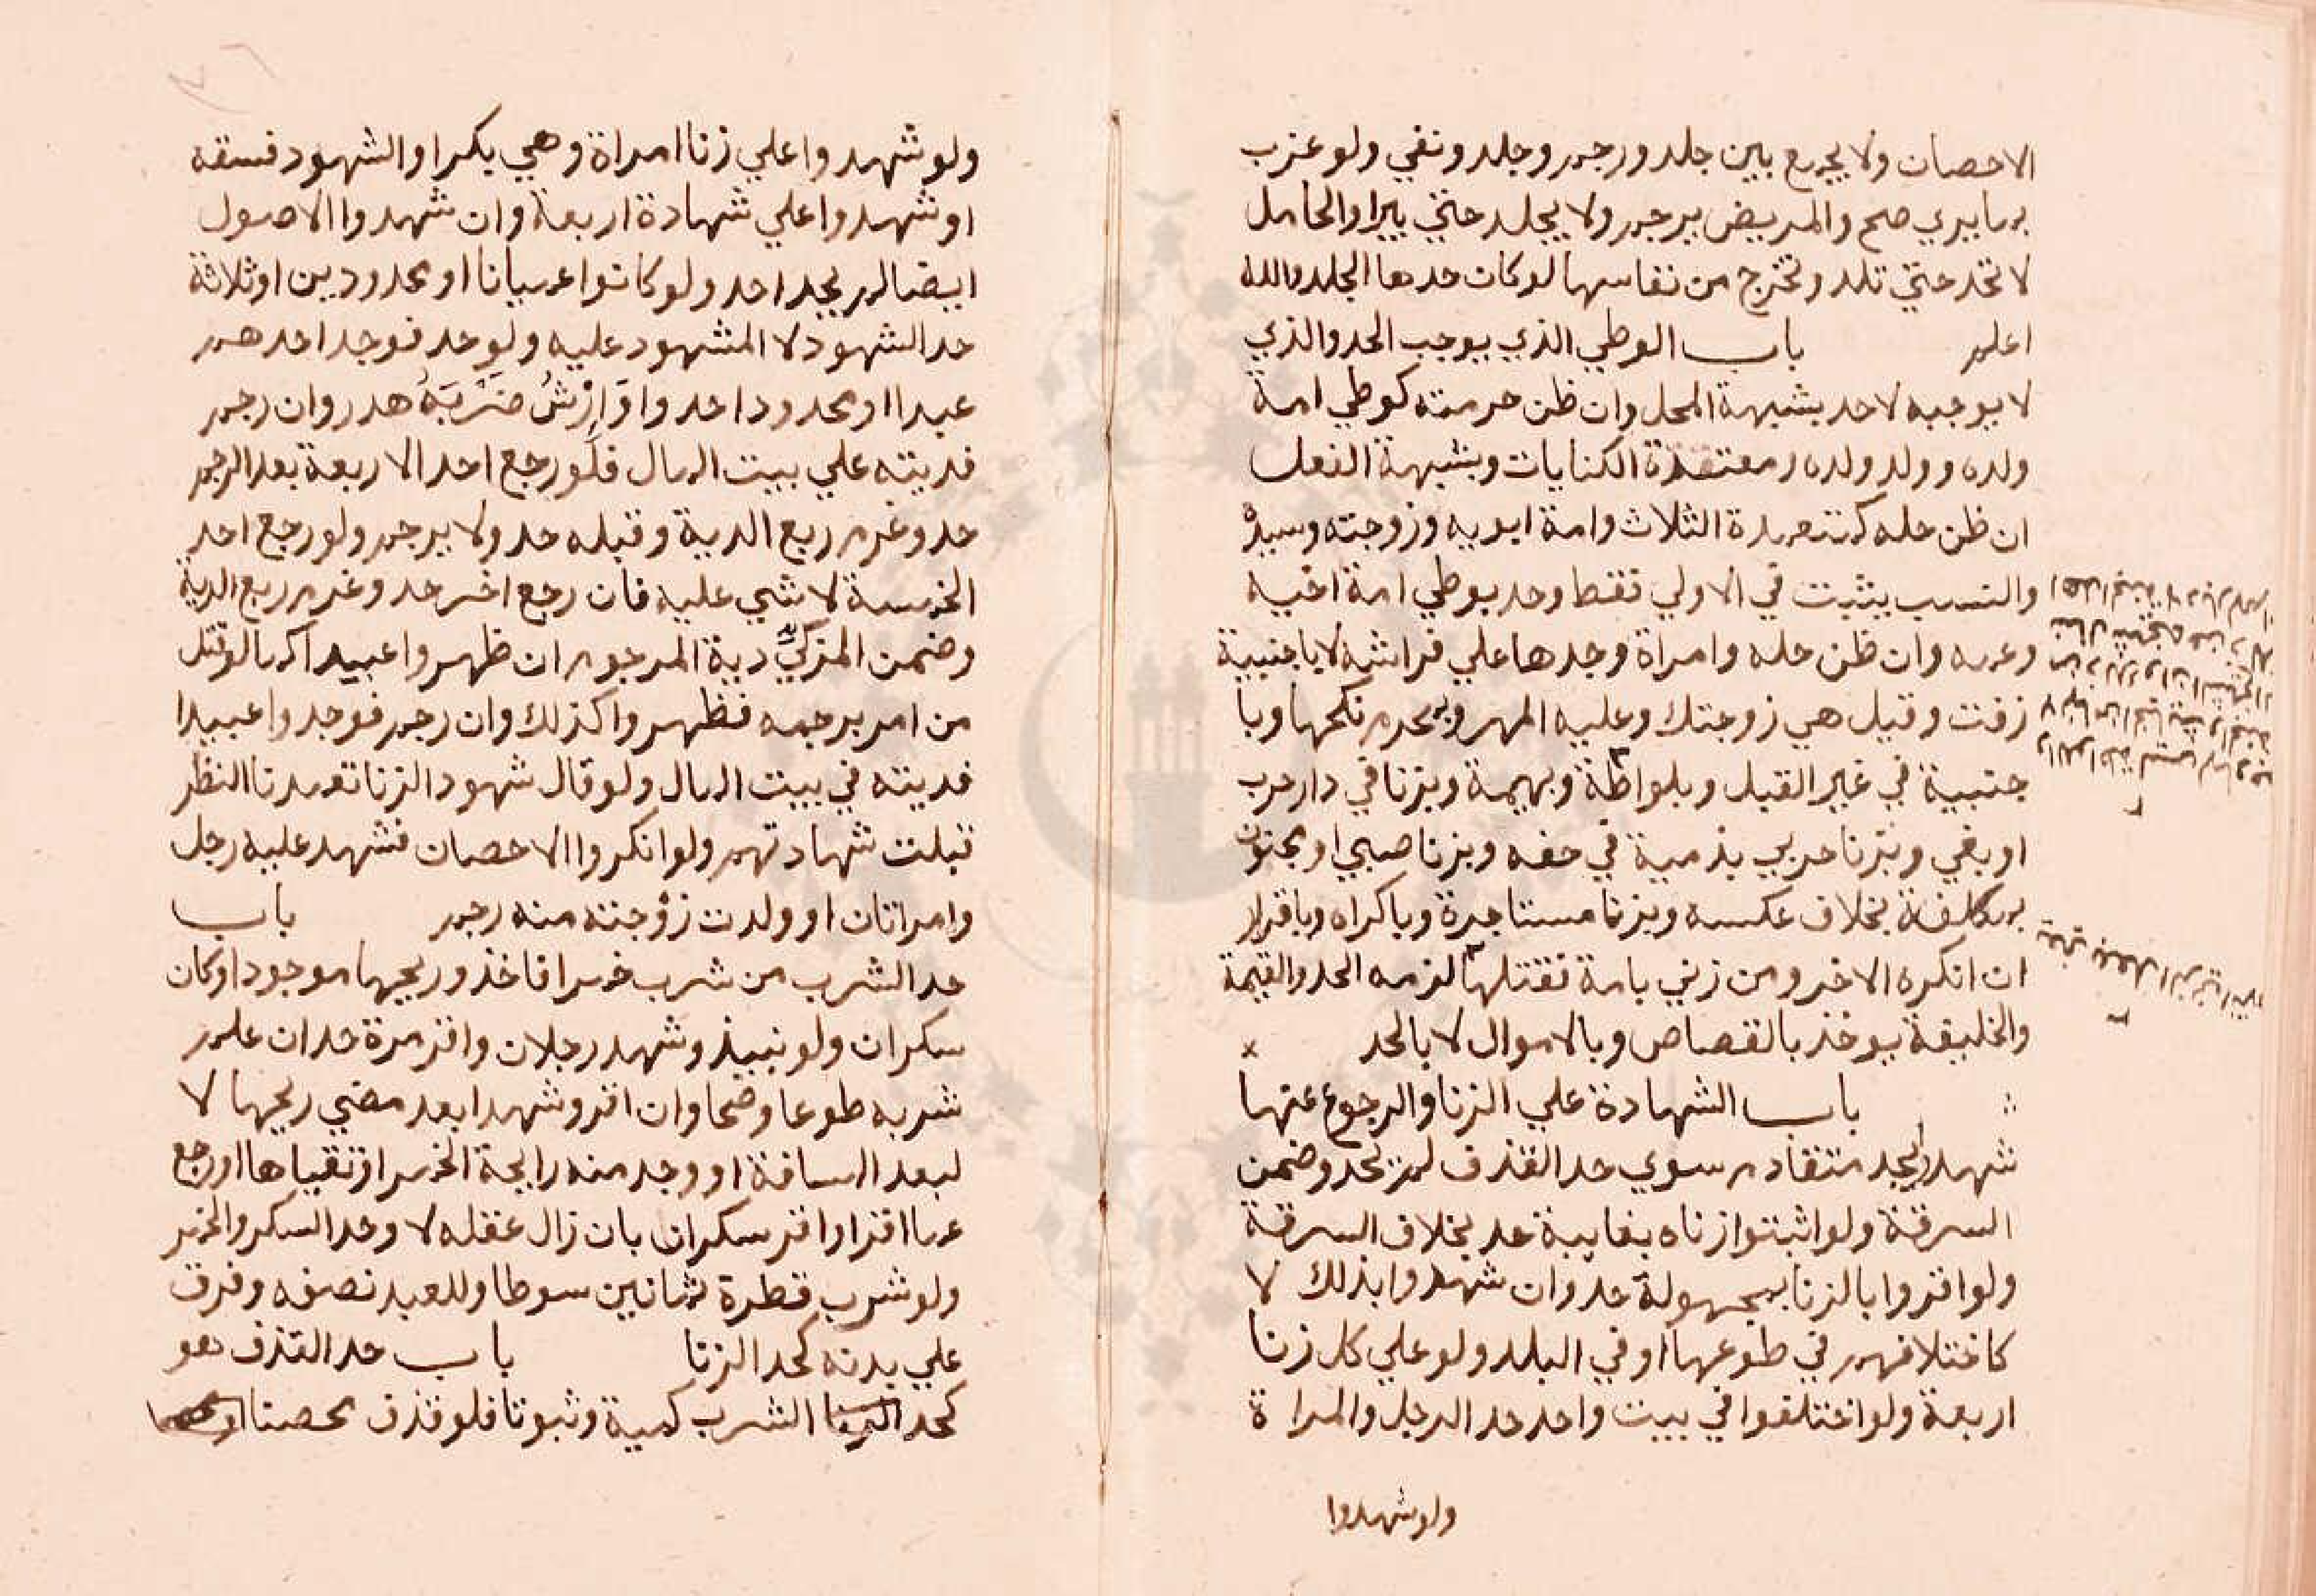 الاحصان ولا يجمع بين جلد ورجم وجلد ونفي ولو غرب
بما يري صح والمريض يرجم ولا يجلد حتي يبرا والحامل
لا تحد حتي تلد وتخرج من نفاسها لو كان حدها الجلد والله
اعلم باب الوطي الذي يوجب الحد والذي
لا يوجبه لا حد بشبهة المحل وان ظن حرمته كوطي امة
ولده وولد ولده ومعتدة الكنايات وبشبهة الفعل
ان ظن حله كمتعدة الثلاث وامة ابويه وزوجته وسيده
والنسب يثبت في الاولي فقط وحد بوطي امة اخيه
وعمه وان ظن حله وامراة وجدها علي فراشه لا باجنبية
زفت وقيل هي زوجتك وعليه المهر وبمحرم نكحها وبا
جنبية في غير القبل وبلواطة وبهيمة وبزنا في دار حرب
او بغي وبزنا حربي بذمية في حقه وبزنا صبي او مجنون
بمكلفة بخلاف عكسه وبزنا مستاجرة وباكراه وباقرار
ان انكره الاخر ومن زني بامة فقتلها لزمه الحد والقيمة
والخليفة يوخذ بالقصاص وبالاموال لا بالحد
باب الشهادة علي الزنا والرجوع عنها
شهدوا بحد متقادم سوي حد القذف لم يحد وضمن
السرقة ولو اثبتوا زناه بغايبة حد بخلاف السرقة
ولو اقروا بالزنا بمجهولة حد وان شهدوا بذلك لا
كاختلافهم في طوعها او في البلد ولو علي كل زنا
اربعة ولو اختلفوا في بيت واحد حد الرجل والمراة
ولو شهدوا
ولو شهدوا علي زنا امراة وهي بكر او الشهود فسقه
او شهدوا علي شهادة اربعة وان شهدوا الاصول
ايضا لم يحد احد ولو كانوا عميانا او محدودين او ثلاثة
حد الشهود لا المشهود عليه ولو حد فوجد احدهم
عبدا او محدودا حدوا وَارْشُ ضَرْبَهُ هدر وان رجم
فديته علي بيت المال فلَو رجع احد الاربعة بعد الرجم
حد وغرم ربع الدية وقبله حد ولا يرجم ولو رجع احد
الخمسة لا شي عليه فان رجع اخر حد وغرم ربع الدية
وضمن المزكي دية المرجوم ان ظهروا عبيدا كما لو قتل
من امر برجمه فظهروا كذلك وان رجم فوجدوا عبيدا
فديته في بيت المال ولو قال شهود الزنا تعمدنا النظر
قبلت شهادتهم ولو انكروا الاحصان فشهد عليه رجل
وامراتان او ولدت زوجته منه رجم باب
حد الشرب من شرب خمرا فاخذ وريحها موجود او كان
سكران ولو نبيذ وشهد رجلان واقر مرة حد ان علم
شربه طوعا وصحا وان اقر وشهدا بعد مضي ريحها لا
لبعد المسافة او وجد منه رايحة الخمر او تقياها او رجع
عما اقر او اقر سكران بان زال عقله لا وحد السكر والخمر
ولو شرب قطرة ثمانين سوطا وللعبد نصفه وفرق
علي بدنه كحد الزنا باب حد القذف هو
كحد الشرب كمية وثبوتا فلو قذف محصنا او